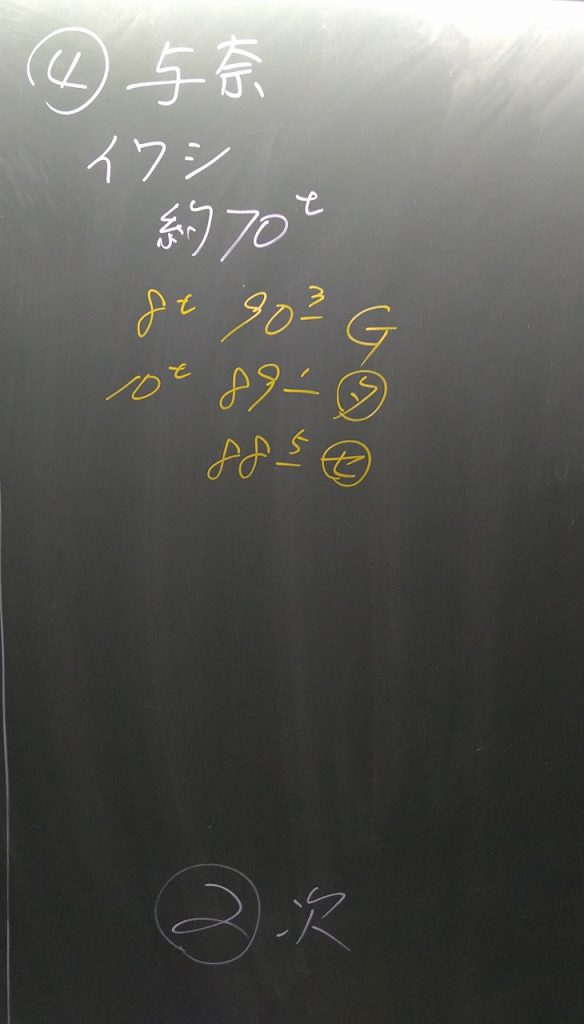 ④ 与奈
イワシ
約70t
8t 90 3 G
10t 89 1
88 5 ㋝
② 次